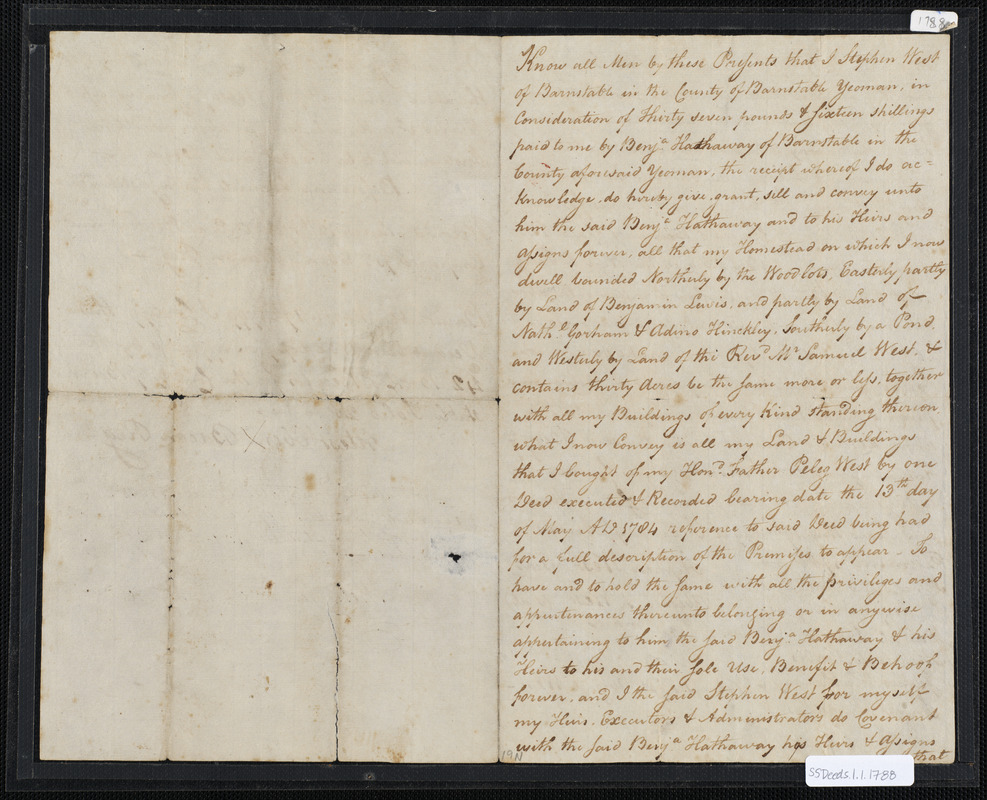 1788
Know all Men by these Presents that I Stephen West
of Barnstable in the County of Barnstable Yeoman, in
Consideration of Thirty seven pounds & sixteen shillings
paid to me by Benjª Hathaway of Barnstable in the
County aforesaid Yeoman, the receipt whereof I do ac=
knowledge, do hereby give, grant, sell and convey unto
him the said Benjª Hathaway and to his Heirs and
assigns forever, all that my Homestead on which I now
dwell bounded Northerly by the Woodlots, Easterly partly
by Land of Benjamin Lewis, and partly by Land of
Nathˡ Gorham & Adino Hinckley, Southerly by a Pond,
and Westerly by Land of the Revᵈ Mʳ Samuel West, &
contains thirty Acres be the same more or less, together
with all my Buildings of every kind standing thereon
what I now Convey is all my Land & Buildings
that I bought of my Honᵈ Father Peleg West by one
Deed executed & Recorded bearing date the 13ᵗʰ day
of May AD 1784 reference to said Deed being had
for a full description of the Premises to appear - To
have and to hold the same with all the privileges and
appurtenances thereunto belonging or in anywise
appertaining to him, the said Benjª Hathaway & his
Heirs to his and their sole Use, Benefit & Behoof
forever, and I the said Stephen West for myself
my Heirs, Executors & Administrators do Covenant
with the said Benjª Hathaway his Heirs & assigns
that
19N
SSDeeds.1.1.1788